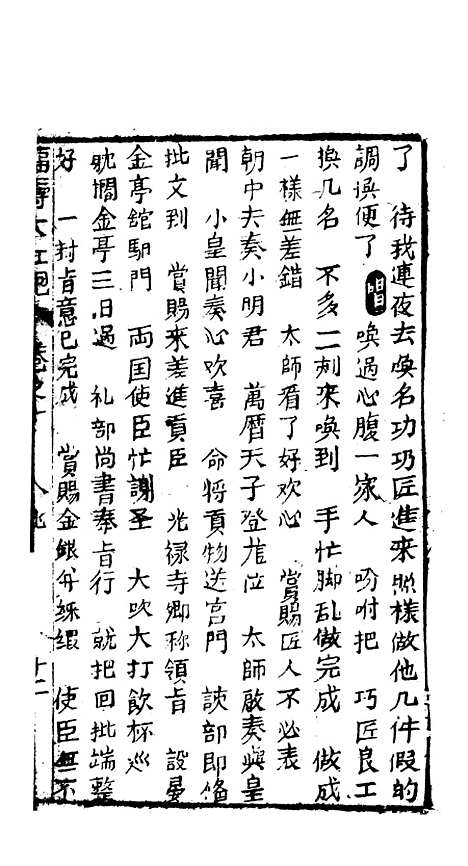 了　待我連夜去喚名功巧匠進來照樣做他几件假的
調換便了　唱　喚過心腹一家人　吩咐把　巧匠良工
換几名　不多一刻來喚到　手忙脚乱做完成　做成
一樣無差錯　太師看了好欢心　賞賜匠人不必表
朝中夫奏小明君　萬曆天子登位　太師啟奏與皇
聞　小皇聞奏心欢喜　命将貢物送宫門　部即俻
批文到　賞賜來差進貢臣　光禄寺卿称領旨　設晏
金亭舘馹門　両国使臣忙謝圣　大吹大打飲杯巡
耽擱金亭三日過　礼部尚書奉旨行　就把回批端整
好　一封旨意已完成　賞賜金銀并綵緞　使臣無不
福壽大紅袍　卷之　十二